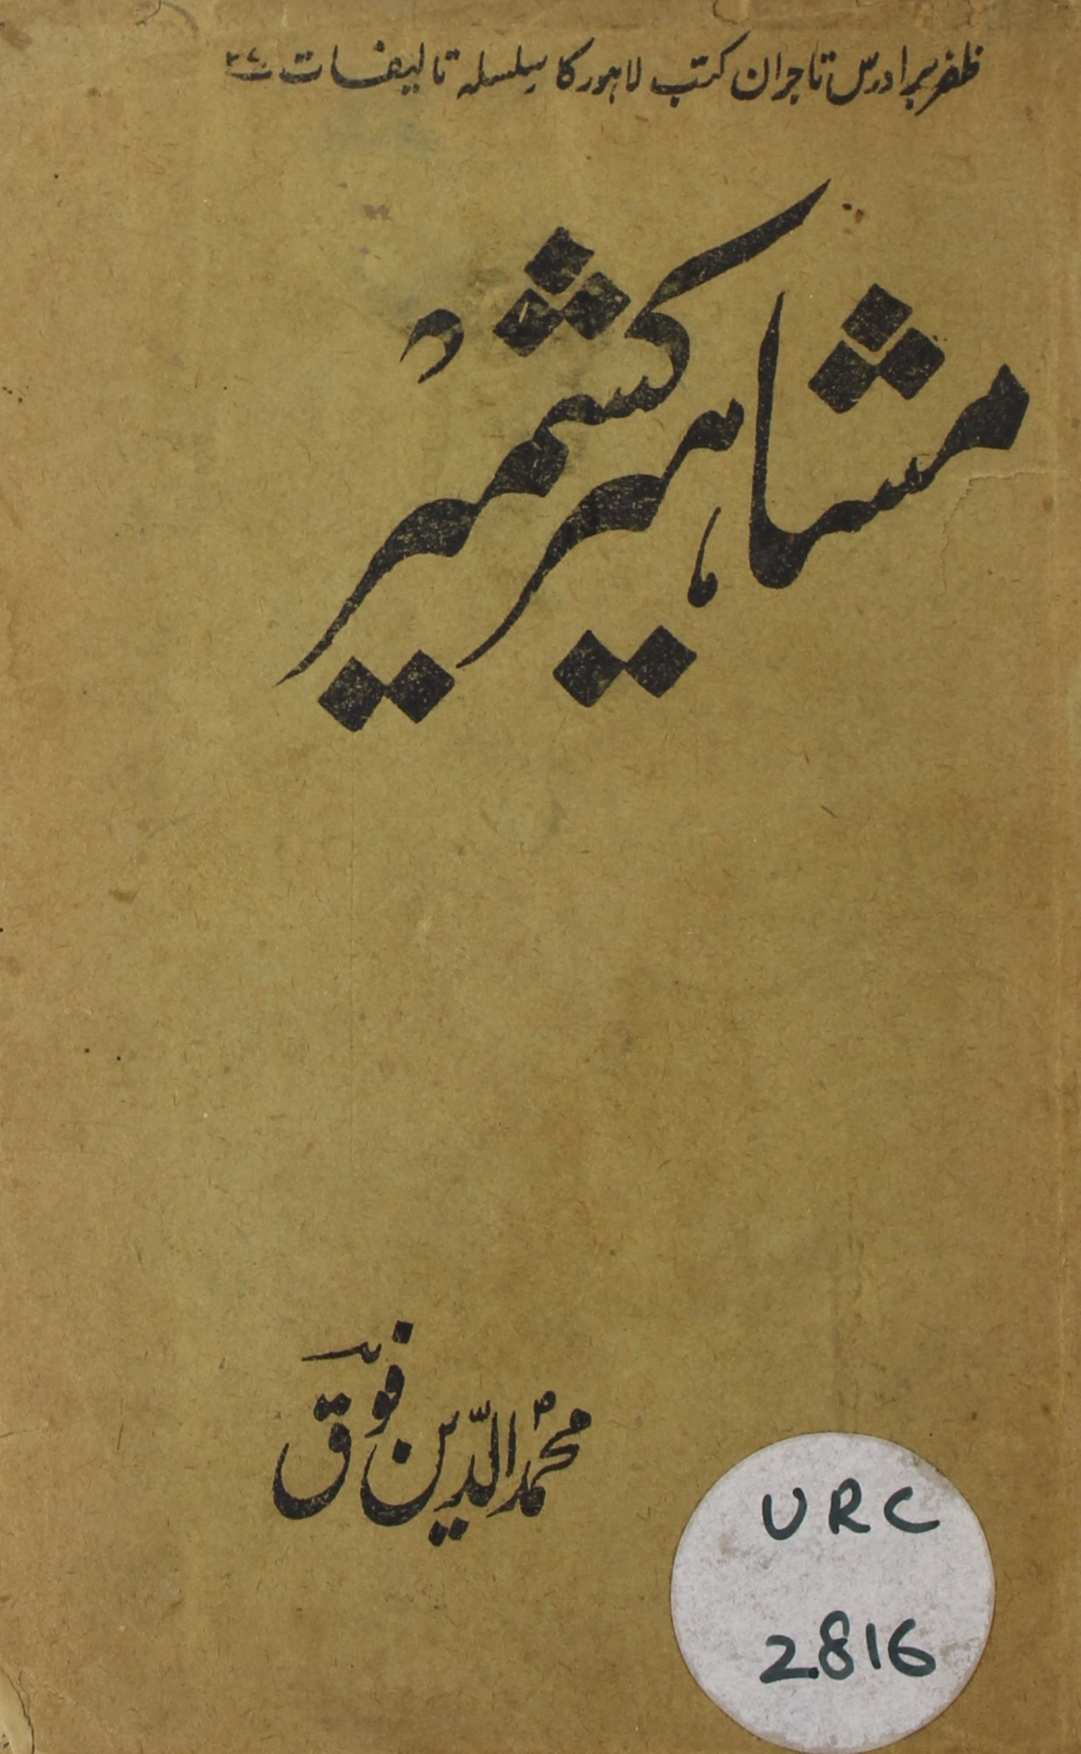 ظفر برادرس تاجران کتب لاہور کا سلسلہ تالیفات
مشاہیر کشمیر
محمد الدین فوق
URC
2816